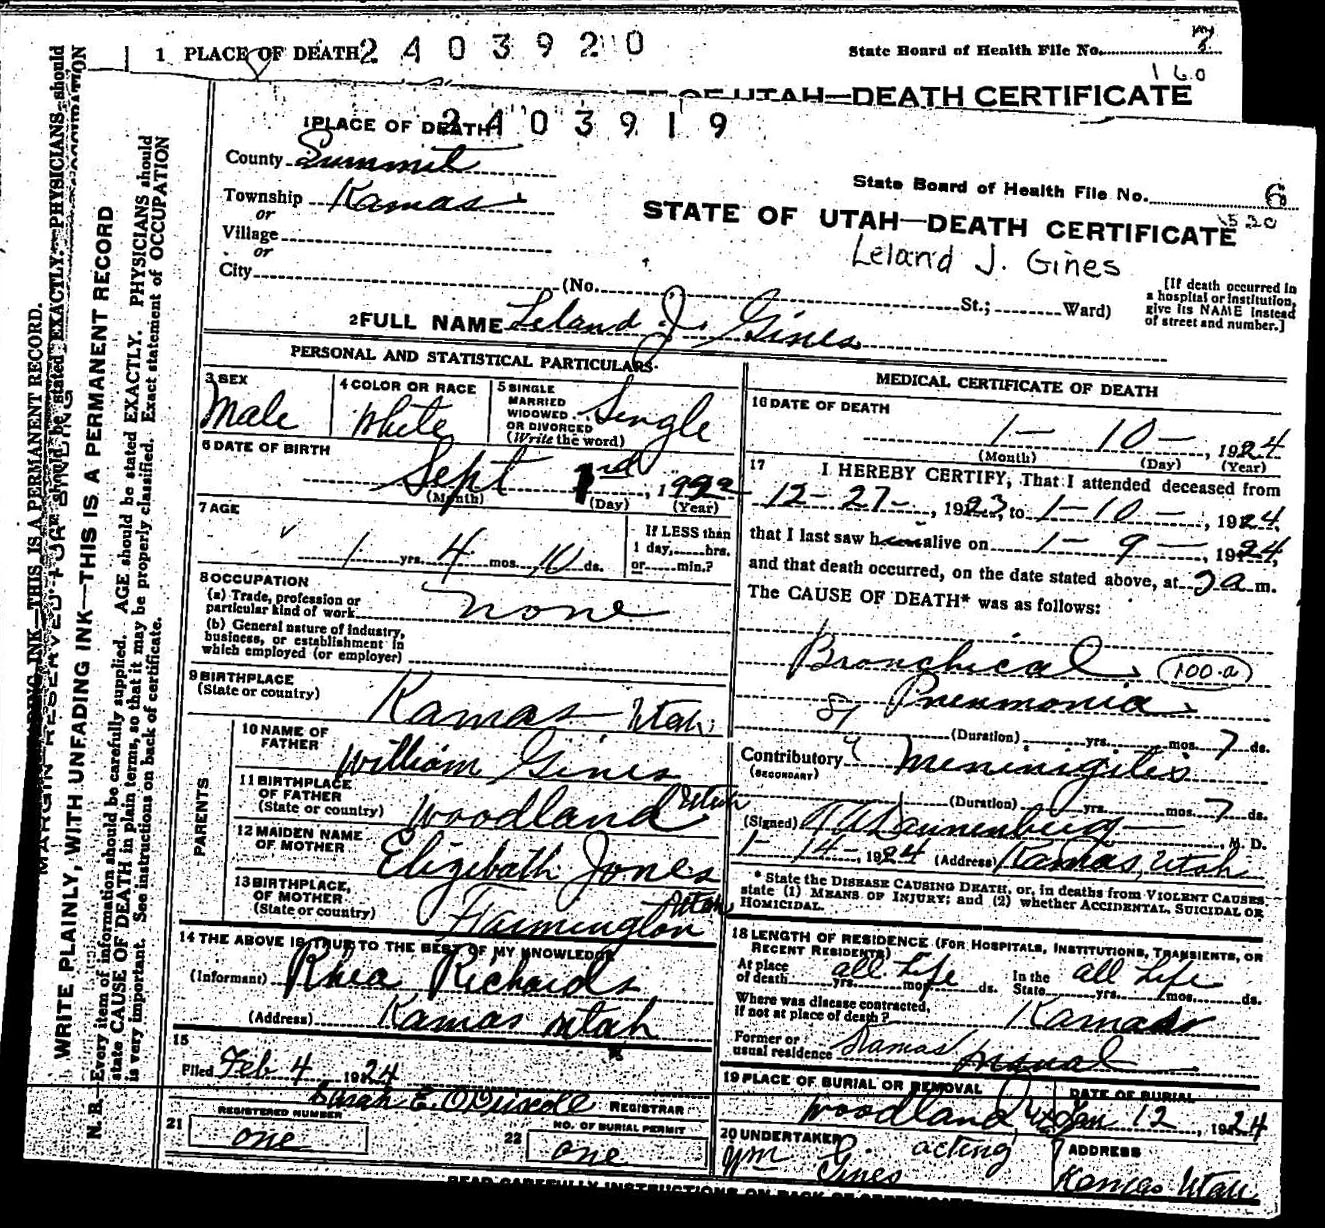 1 PLACE OF DEATH 2403920
State Board of Health File No. 8
160
OF UTAH—DEATH CERTIFICATE
1 PLACE OF DEATH 2403919
County Summit
State Board of Health File No. 6
Township Kamas
or
STATE OF UTAH—DEATH CERTIFICATE
Village
or
Leland J. Gines
City (No. St.; Ward)
[If death occurred in
a hospital or institution,
give its NAME instead
of street and number.]
2 FULL NAME Leland J. Gines
PERSONAL AND STATISTICAL PARTICULARS
3 SEX
Male
4 COLOR OR RACE
White
5 SINGLE
MARRIED
WIDOWED
OR DIVORCED
(Write the word)
Single
6 DATE OF BIRTH
Sept 1
(Month) (Day) (Year)
7 AGE
1 yrs. 4 mos. 10 ds.
If LESS than
1 day, hrs.
or min.?
8 OCCUPATION
(a) Trade, profession or
particular kind of work
none
(b) General nature of industry,
business, or establishment in
which employed (or employer)
9 BIRTHPLACE
(State or country)
Kamas Utah
PARENTS
10 NAME OF
FATHER
William Gines
11 BIRTHPLACE
OF FATHER
(State or country)
Woodland Utah
12 MAIDEN NAME
OF MOTHER
Elizibath Jones
13 BIRTHPLACE,
OF MOTHER
(State or country)
Farmington Utah
14 THE ABOVE IS TRUE TO THE BEST OF MY KNOWLEDGE
(Informant) Rhea Richards
(Address) Kamas Utah
15
Filed Feb 4 1924
Sarah E. O'Driscoll REGISTRAR
21 REGISTERED NUMBER
one
22 NO. OF BURIAL PERMIT
one
MEDICAL CERTIFICATE OF DEATH
16 DATE OF DEATH
1— 10—, 1924
(Month) (Day) (Year)
17 I HEREBY CERTIFY, That I attended deceased from
12-27-, 1923, to 1-10-, 1924,
that I last saw him alive on 1-9-, 1924,
and that death occurred, on the date stated above, at 2 a m.
The CAUSE OF DEATH* was as follows:
Bronchical 100-a
Pneumonia
(Duration) yrs. mos. 7 ds.
Contributory Meninigitis
(SECONDARY)
(Duration) yrs. mos. 7 ds.
(Signed) Dannenberg M. D.
1-14-, 1924 (Address) Kamas, Utah
* State the DISEASE CAUSING DEATH, or, in deaths from VIOLENT CAUSES
state (1) MEANS OF INJURY; and (2) whether ACCIDENTAL, SUICIDAL OR
HOMICIDAL.
18 LENGTH OF RESIDENCE (FOR HOSPITALS, INSTITUTIONS, TRANSIENTS, OR
RECENT RESIDENTS)
At place
of death all Life yrs. mos. ds.
In the
State all Life yrs. mos. ds.
Where was disease contracted,
if not at place of death? Kamas
Former or
usual residence Kamas
19 PLACE OF BURIAL OR REMOVAL
Woodland
DATE OF BURIAL
Jan 12, 1924
20 UNDERTAKER
Wm Gines acting
ADDRESS
Kamas Utah
READ CAREFULLY INSTRUCTIONS ON BACK OF CERTIFICATE
MARGIN RESERVED FOR BINDING
WRITE PLAINLY, WITH UNFADING INK—THIS IS A PERMANENT RECORD
N. B.—Every item of information should be carefully supplied. AGE should be stated EXACTLY. PHYSICIANS should
state CAUSE OF DEATH in plain terms, so that it may be properly classified. Exact statement of OCCUPATION
is very important. See instructions on back of certificate.